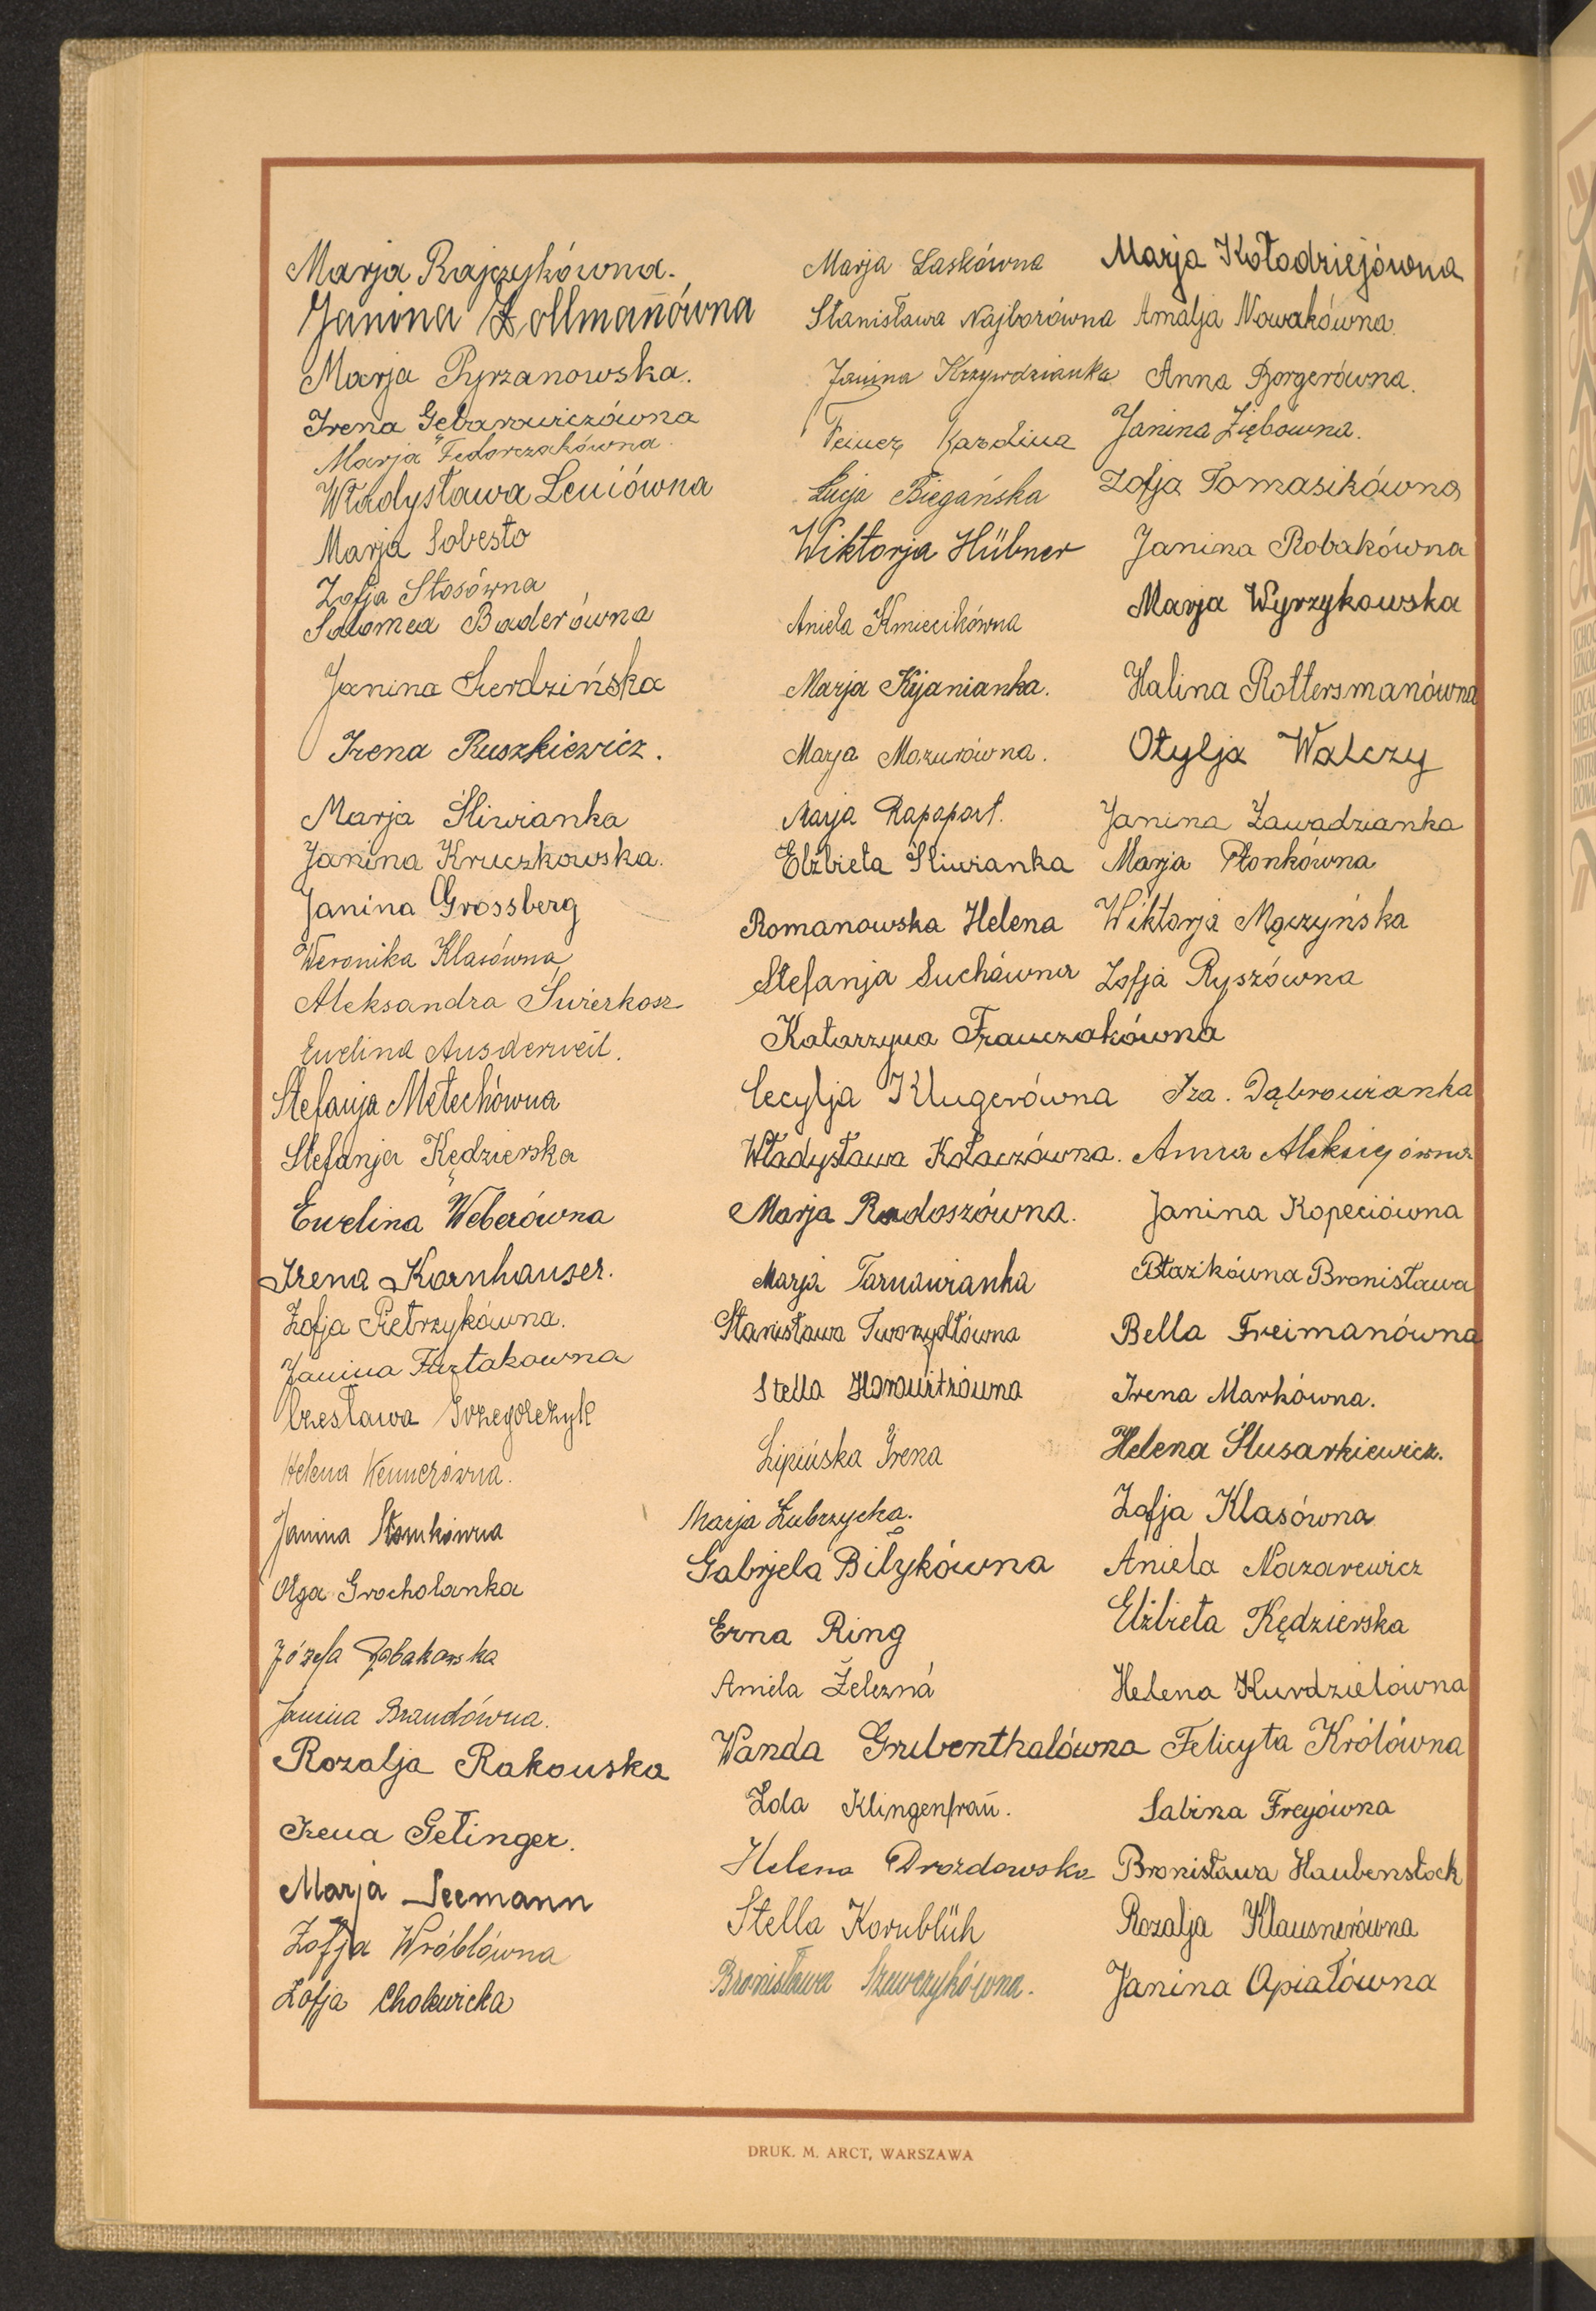 Marja Rajczykówna.
Janina Zollmanówna
Marja Pyrzanowska.
Irena Gębarowiczówna
Marja Fedorczakówna
Władysława Leniówna
Marja Sobesto
Zofja Stosówna
Salomea Baderówna
Janina Sierdzińska
Irena Ruszkiewicz.
Marja Śliwianka
Janina Kruczkowska.
Janina Grossberg
Weronika Klasówna
Aleksandra Świerkosz
Ewelina Ausderweil.
Stefanja Metechówna
Stefanja Kędzierska
Ewelina Weberówna
Irena Kornhauser.
Zofja Pietrzykówna.
Janina Furtakowna
Czesława Grzegorczyk
Helena Kennerówna.
Janina Słomkówna
Olga Grocholanka
Józefa
Janina Brandówna.
Rozalja Rakowska
Irena Getinger.
Marja Seemann
Zofja Wróblówna
Zofja Cholewicka
Marja Laskówna
Stanisława Najborówna
Janina Krzywdzianka
Feiner Karolina
Łucja Biegańska
Wiktorja Hübner
Aniela Kmiecikówna
Marja Kijanianka.
Marja Mazurówna.
Marja Rapaport.
Elżbieta Śliwianka
Romanowska Helena
Stefanja Suchówna
Katarzyna Franczakówna
Cecylja Klugerówna
Władysława Kołaczówna.
Marja Radoszówna.
Marja Tarnawianka
Stanisława Tworzydłówna
Stella Horowitzówna
Lipińska Irena
Marja Zubrzycka.
Gabrjela Biłykówna
Erna Ring
Aniela Żelezna
Wanda Grubenthalówna
Lola Klingenfrau.
Helena Drozdowska
Stella Kornblüh
Bronisława Szewczykówna.
Marja Kołodziejówna
Amalja Nowakówna
Anna Borgerówna.
Janina Ziębówna.
Zofja Tomasikówna
Janina Robakówna
Marja Wyrzykowska
Halina Rottersmanówna
Otylja Walczy
Janina Zawadzianka
Marja Płonkówna
Wiktorja Mączyńska
Zofja Ryszówna
Iza. Dąbrowianka
Anna Aleksiejówna
Janina Kopeciówna
Ptazikówna Bronisława
Bella Freimanówna
Irena Markówna.
Helena Ślusarkiewicz.
Zofja Klasówna
Aniela Nazarewicz
Elżbieta Kędzierska
Helena Kurdzielówna
Felicyta Królówna
Sabina Freyówna
Bronisława Haubenstock
Rozalja Klausnerówna
Janina Opiałówna
DRUK. M. ARCT, WARSZAWA